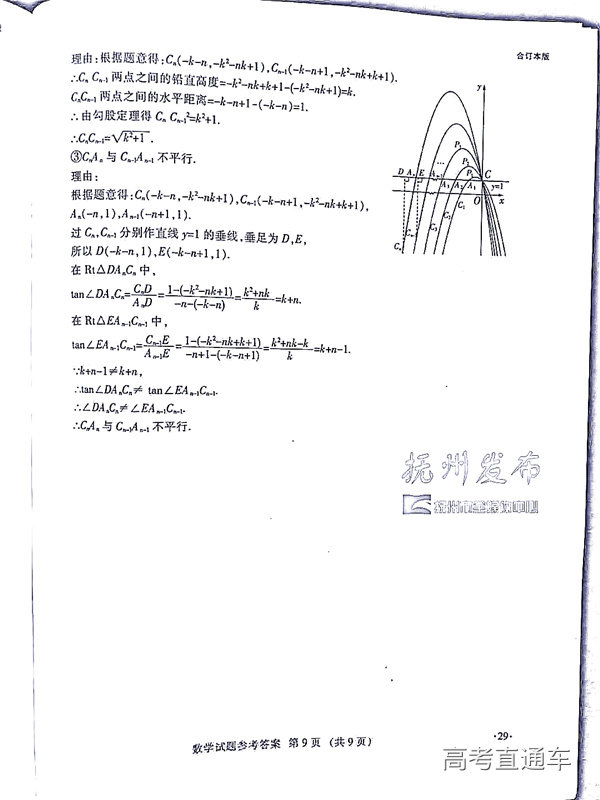 合订本版
理由:根据题意得:Cₙ(-k-n,-k²-nk+1),Cₙ₋₁(-k-n+1,-k²-nk+k+1).
∴Cₙ Cₙ₋₁ 两点之间的铅直高度=-k²-nk+k+1-(-k²-nk+1)=k.
CₙCₙ₋₁ 两点之间的水平距离=-k-n+1-(-k-n)=1.
∴由勾股定理得 Cₙ Cₙ₋₁²=k²+1.
∴CₙCₙ₋₁=√(k²+1).
③CₙAₙ 与 Cₙ₋₁Aₙ₋₁ 不平行.
理由:
根据题意得:Cₙ(-k-n,-k²-nk+1),Cₙ₋₁(-k-n+1,-k²-nk+k+1),
Aₙ(-n,1),Aₙ₋₁(-n+1,1).
过 Cₙ,Cₙ₋₁ 分别作直线 y=1 的垂线,垂足为 D,E,
所以 D(-k-n,1),E(-k-n+1,1).
在 Rt△DAₙCₙ 中,
tan∠DAₙCₙ=CₙD/AₙD=(1-(-k²-nk+1))/(-n-(-k-n))=(k²+nk)/k=k+n.
在 Rt△EAₙ₋₁Cₙ₋₁ 中,
tan∠EAₙ₋₁Cₙ₋₁=Cₙ₋₁E/Aₙ₋₁E=(1-(-k²-nk+k+1))/(-n+1-(-k-n+1))=(k²+nk-k)/k=k+n-1.
∵k+n-1≠k+n,
∴tan∠DAₙCₙ≠ tan∠EAₙ₋₁Cₙ₋₁.
∴∠DAₙCₙ≠∠EAₙ₋₁Cₙ₋₁.
∴CₙAₙ 与 Cₙ₋₁Aₙ₋₁ 不平行.
y
P₂
P₁
…
D Aₙ E Aₙ₋₁ C
A₃ A₂ A₁ y=1
O x
C₁
C₂
C₃
Cₙ Cₙ₋₁
抚州发布
数学试题参考答案 第 9 页 (共 9 页)
·29·
高考直通车